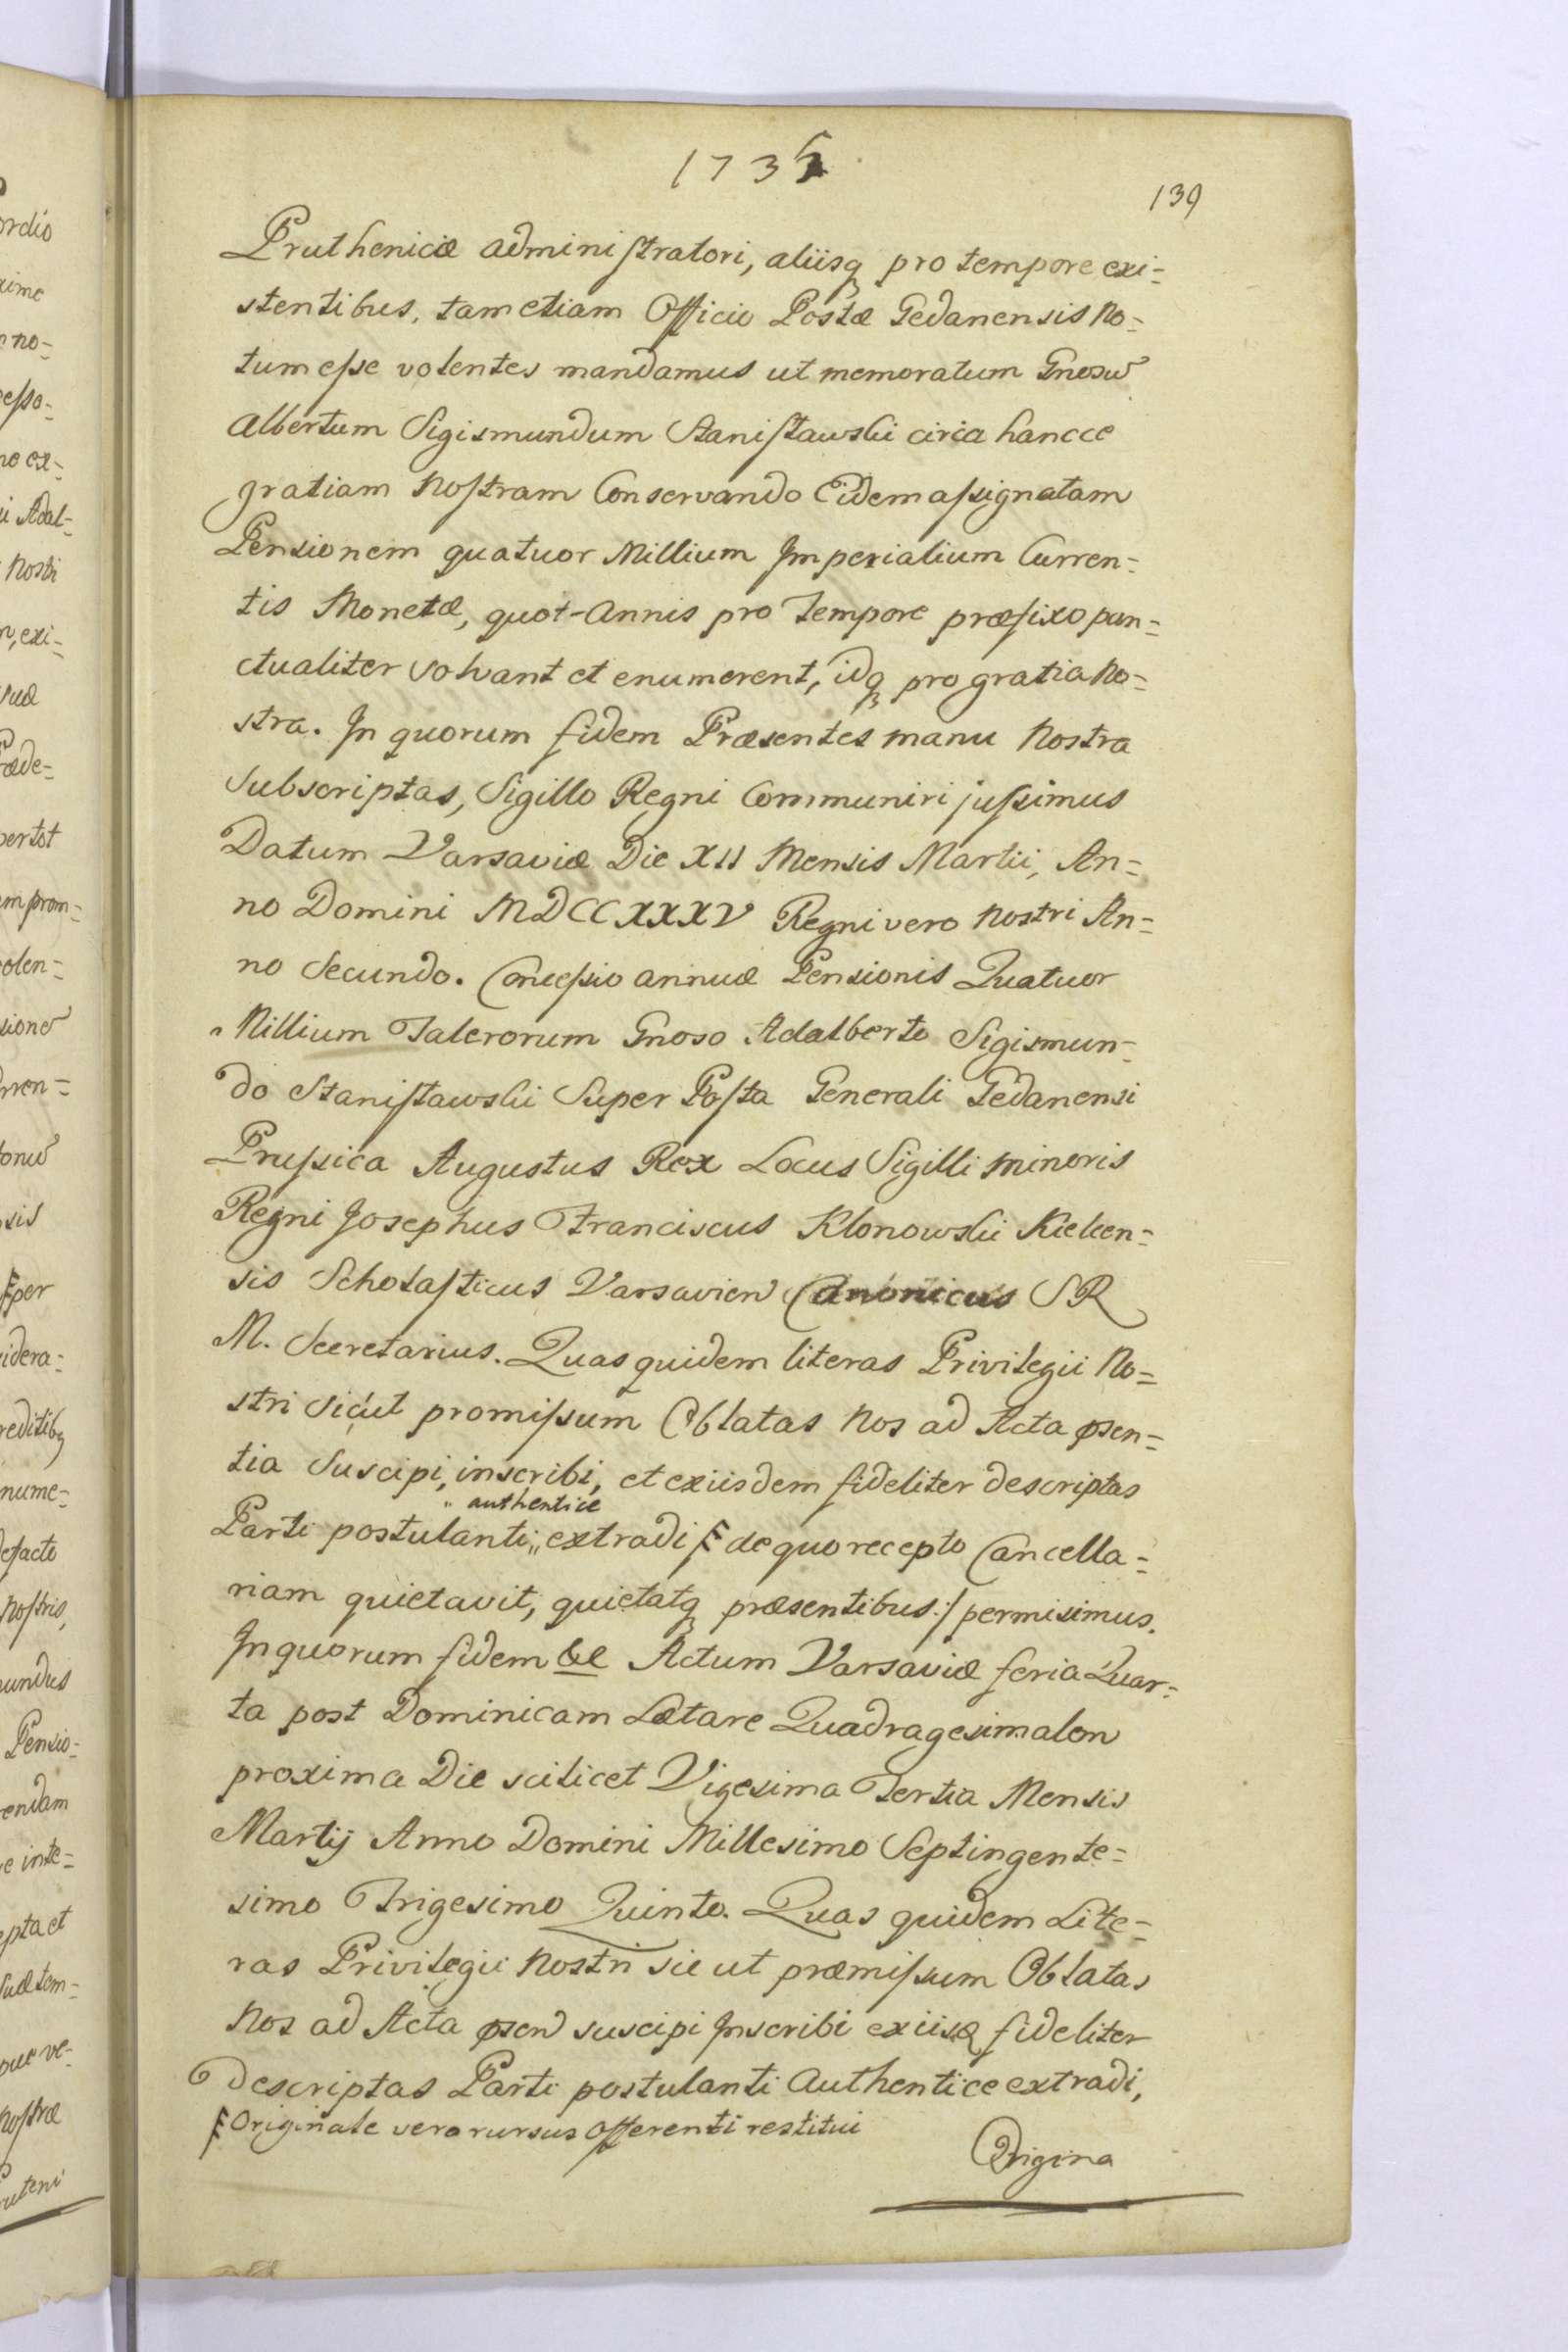 1735
139
Prutheniciæ administratori, aliisq pro tempore exi=
stentibus, tam etiam Officio Postæ Gedanensis No=
tum esse volentes mandamus ut memoratum Gnosum
Albertum Sigismundum Stanisławski circa hancce
gratiam Nostram Conservando Eidem assignatam
Pensionem quatuor Millium Imperialium Curren=
tis Monetæ, quot-Annis pro tempore præfixo pun=
ctualiter solvant et enumerent, idq pro gratia No=
stra. In quorum fidem Præsentes manu Nostra
Subscriptas, Sigillo Regni Communiri jussimus
Datum Varsaviæ Die XII Mensis Martii, An=
no Domini MDCCXXXV Regni vero Nostri An=
no Secundo. Concessio annuæ Pensionis Quatuor
Millium Talerorum Gnoso Adalberto Sigismun=
do Stanisławski Super Posta Generali Gedanensi
Prussica Augustus Rex Locus Sigilli minoris
Regni Josephus Franciscus Klonowski Kielcen=
sis Scholasticus Varsavien Canonicus SR
M. Secretarius. Quas quidem literas Privilegii No=
stri sicut promissum Oblatas Nos ad Acta psen=
tia Suscipi, inscribi, et exiisdem fideliter descriptas
authentice
Parti postulanti,, extradi de quo recepto Cancella=
riam quietavit, quietatq præsentibus:/ permisimus.
In quorum fidem &c Actum Varsaviæ feria Quar=
ta post Dominicam Lætare Quadragesimalem
proxima Die scilicet Vigesima Tertia Mensis
Martij Anno Domini Millesimo Septingente=
simo Trigesimo Quinto. Quas quidem Lite=
ras Privilegii Nostri sic ut præmissum Oblatas
Nos ad Acta psen suscipi Inscribi exiisq fideliter
Descriptas Parti postulanti Authentice extradi,
Originale vero rursus Offerenti restitui
Origina